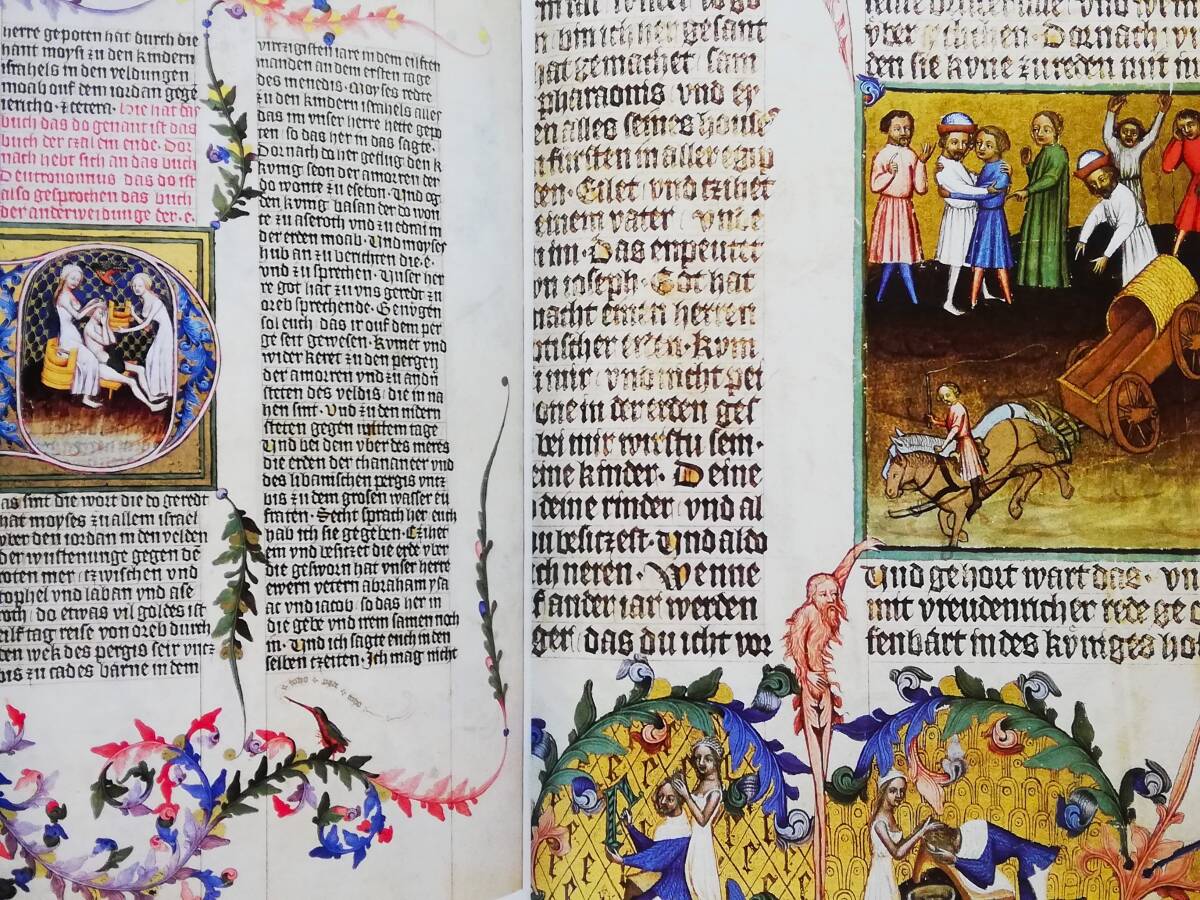 herre gepoten hat durch die
hant moysi zu den kindern
israhels in den veldungen
moab ouf dem iordan gegē
iericho · zetera · Hie hat das
buch das do genant ist das
buch der czal ein ende · Dor
nach hebt sich an das buch
Deutronomius das do ist
also gesprochen das buch
der anderweidunge der · e ·
as sint die wort die do geredt
hat moyses zu allem israel
vber den iordan in den velden
der wustenunge gegen dē
roten mer · tzwischen vnd
tophel vnd laban vnd ase
roth / do etwas vil goldes ist
eilf tag reise von oreb durch
den wek des pergis seir vntz
bis zu cades barne in dem
virczigisten iare in dem eilften
manden an dem ersten tage
des menedis · Moyses redte
zu den kindern israhels alles
das im vnser herre hette gepo
ten · so das her in das sagte ·
Dornach do her geslug den k
kynig seon der amorren der
do wonte zu esebon · Und og
den kynig basan der do won
te zu aseroth vnd zu edrai in
der erden moab · Und moyses
hub an zu berichten die · e ·
vnd zu sprechen · Unser her
re got hat zu vns geredt zu
oreb sprechende · Genugen
sol euch das ir ouf dem per
ge seit gewesen · Kumet vnd
wider keret zu den pergen
der amorren vnd zu andn̄
steten des veldis die in na
hen sint · Und zu den nidern
steten gegen mittem tage
Und bei dem vber des meres
die erden der chananeer vnd
des libanischen pergis vntz
bis zu dem grosen wasser eu
fraten · Secht sprach her euch
hab ich sie gegeben · Czihet
ein vnd besitzet die erde vber
die gesworn hat vnser herre
ewern vetern abraham ysa
ac vnd iacob · so das her in
die gebe vnd irem samen noch
in · Und ich sagte euch in den
selben tzeiten · Ich mag nicht
vin ich her gesant
hat gemachet sam
pharaonis vnd ey
en alles seines houses
fursten in aller egip
en · Eilet vnd tzihet
einem vater
im · Das enpeutet
n ioseph · Got hat
macht einen herren
ptischer erden · Kum
mir vnd nicht pei
one in der erden ges
bei mir wirstu sein ·
eine kinder · Deine
deine rinder vnd al
u besitzest · Und aldo
ch neren · Wenne
f ander iar werden
ger / das du icht vor
Dornach
den sie kyne zu reden mit im
Und gehort wart das · vn
mit vreudenricher rede ge
fenbart in des kyniges ho